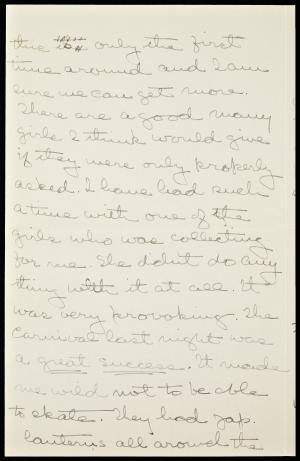 this is only the first
time around and I am
sure we can get more.
There are a good many
girls I think would give
if they were only properly
asked. I have had such
a time with one of the
girls who was collecting
for me. She didn't do any
thing with it at all. It
was very provoking. The
Carnival last night was
a great success. It made
me wild not to be able
to skate. They had jap.
lanterns all around the